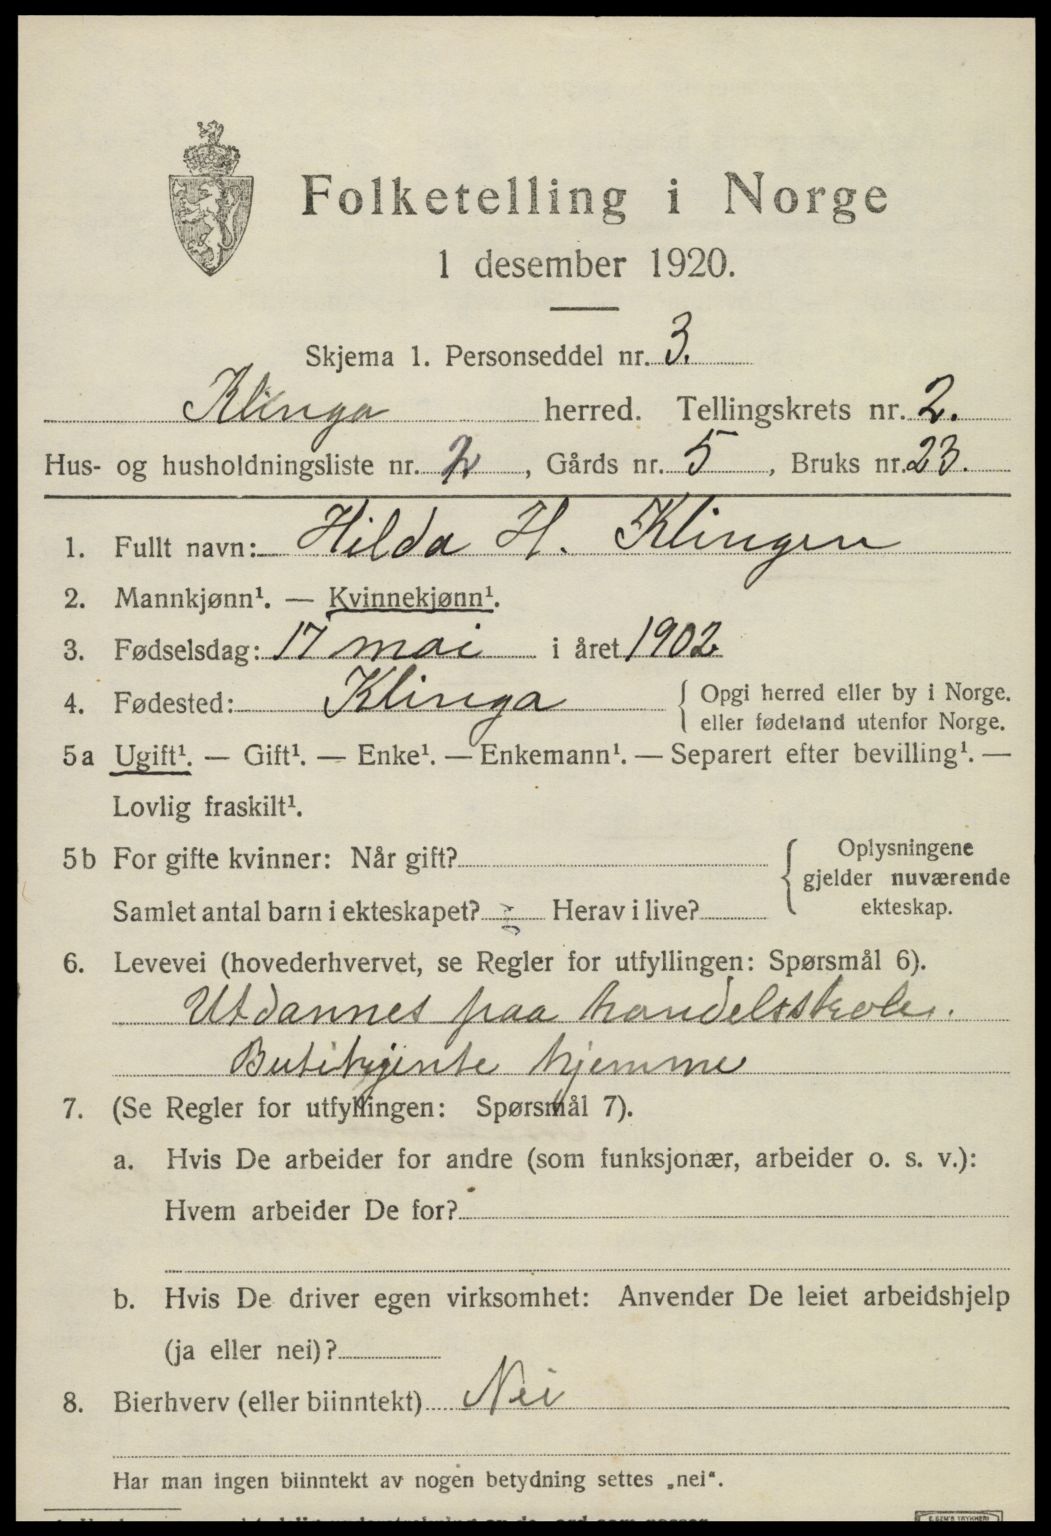 Folketelling i Norge
1 desember 1920.
Skjema 1. Personseddel nr. 3.
Klinga herred. Tellingskrets nr. 2.
Hus- og husholdningsliste nr. 2, Gårds nr. 5, Bruks nr. 23.
1. Fullt navn: Hilda H. Klingen
2. Mannkjønn¹. — Kvinnekjønn¹.
3. Fødselsdag: 17 mai i året 1902
4. Fødested: Klinga { Opgi herred eller by i Norge.
eller fødeland utenfor Norge.
5a Ugift¹. — Gift¹. — Enke¹. — Enkemann¹. — Separert efter bevilling¹. —
Lovlig fraskilt¹.
5b For gifte kvinner: Når gift? { Oplysningene
gjelder nuværende
ekteskap.
Samlet antal barn i ekteskapet? Herav i live?
6. Levevei (hovederhvervet, se Regler for utfyllingen: Spørsmål 6).
Utdannes paa handelsskole.
hjemme
7. (Se Regler for utfyllingen: Spørsmål 7).
a. Hvis De arbeider for andre (som funksjonær, arbeider o. s. v.):
Hvem arbeider De for?
b. Hvis De driver egen virksomhet: Anvender De leiet arbeidshjelp
(ja eller nei)?
8. Bierhverv (eller biinntekt) Nei
Har man ingen biinntekt av nogen betydning settes „nei“.